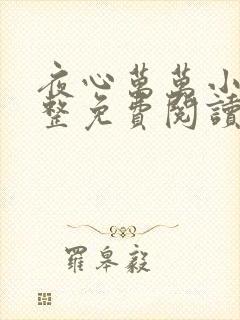 夜心萬萬小
整免費閱讀
羅皋毅